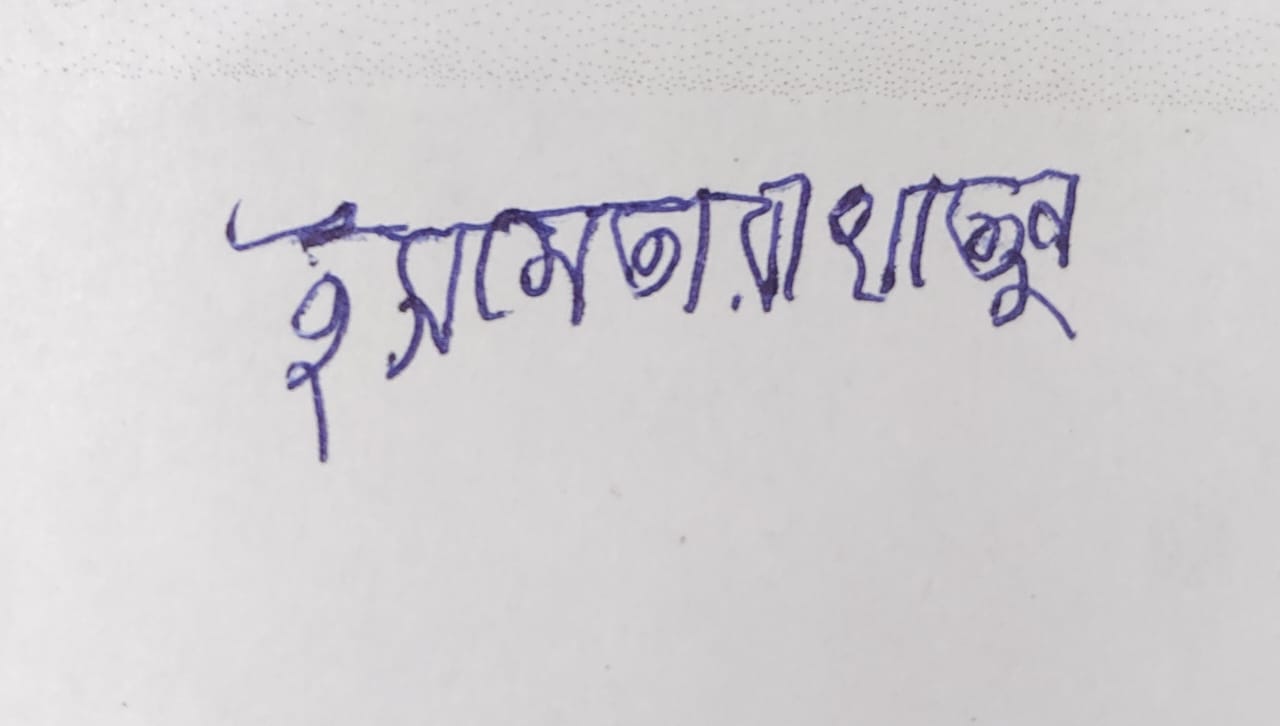 ইসমেতারা খাতুন